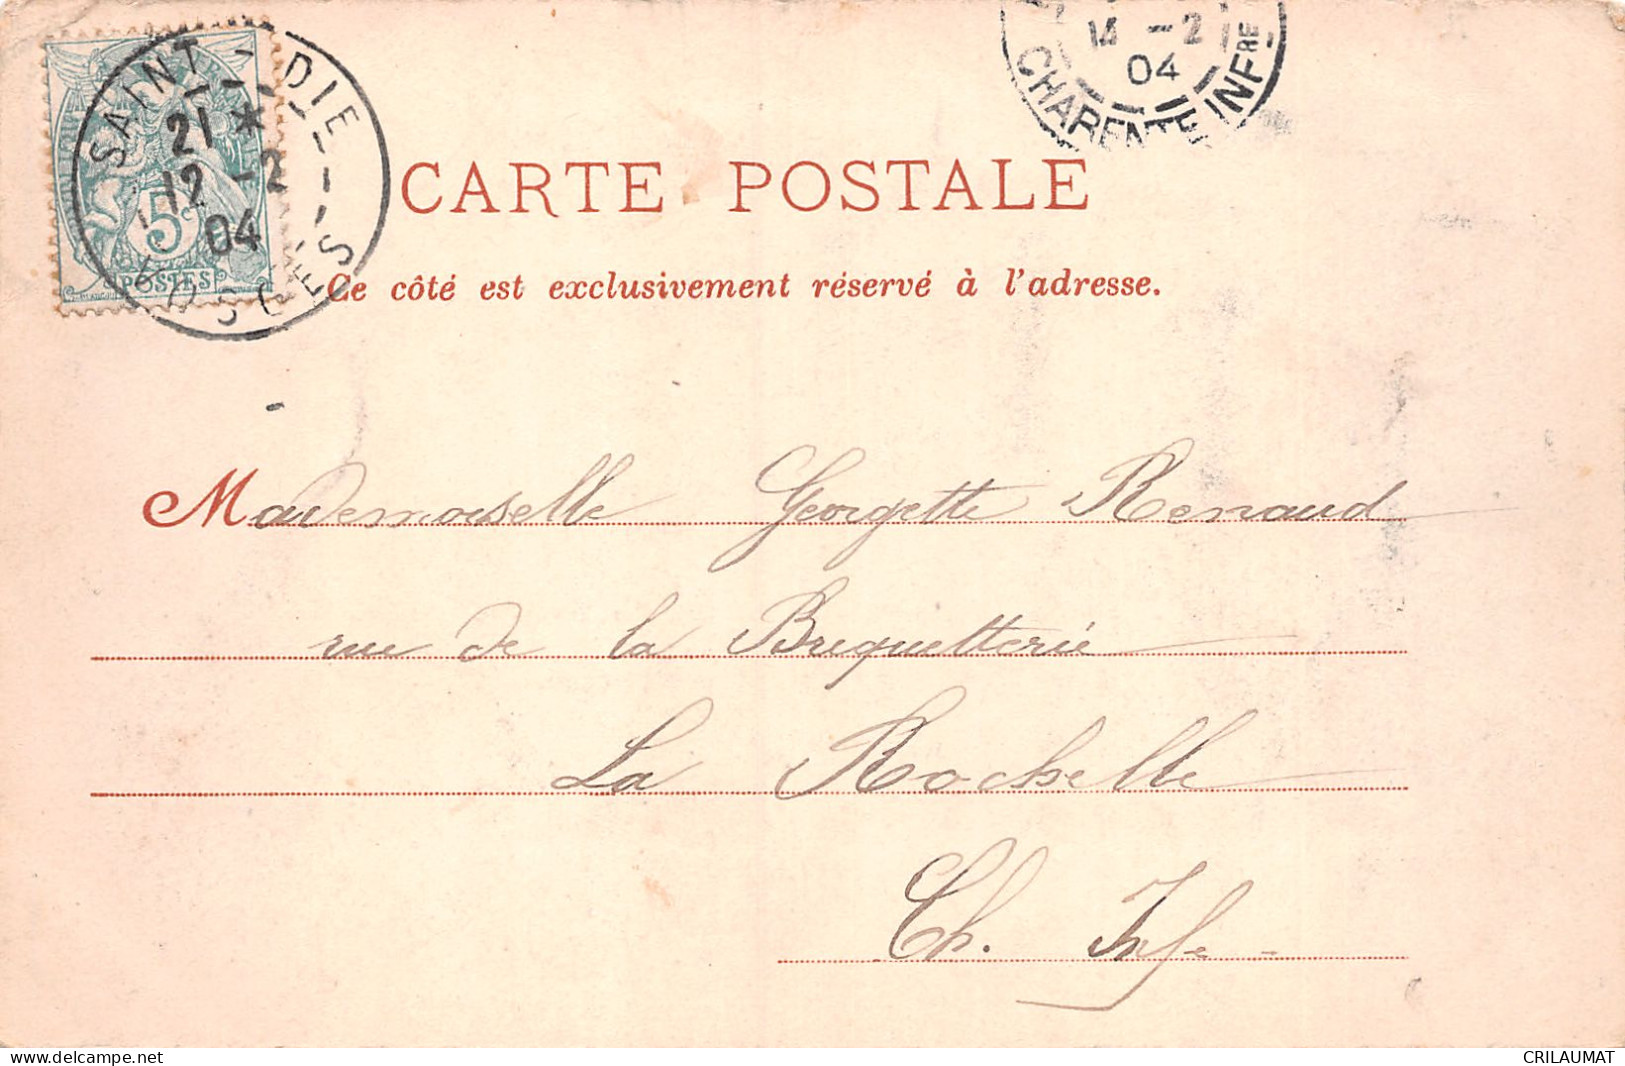 SAINT-DIE
21 *
12 -2
04
VOSGES
5c
POSTES
14 -2
04
CHARENTE INFRE
CARTE POSTALE
Ce côté est exclusivement réservé à l'adresse.
Mademoiselle Georgette Renaud
rue de la Briquetterie
La Rochelle
Ch. Infe
delcampe.net
CRILAUMAT